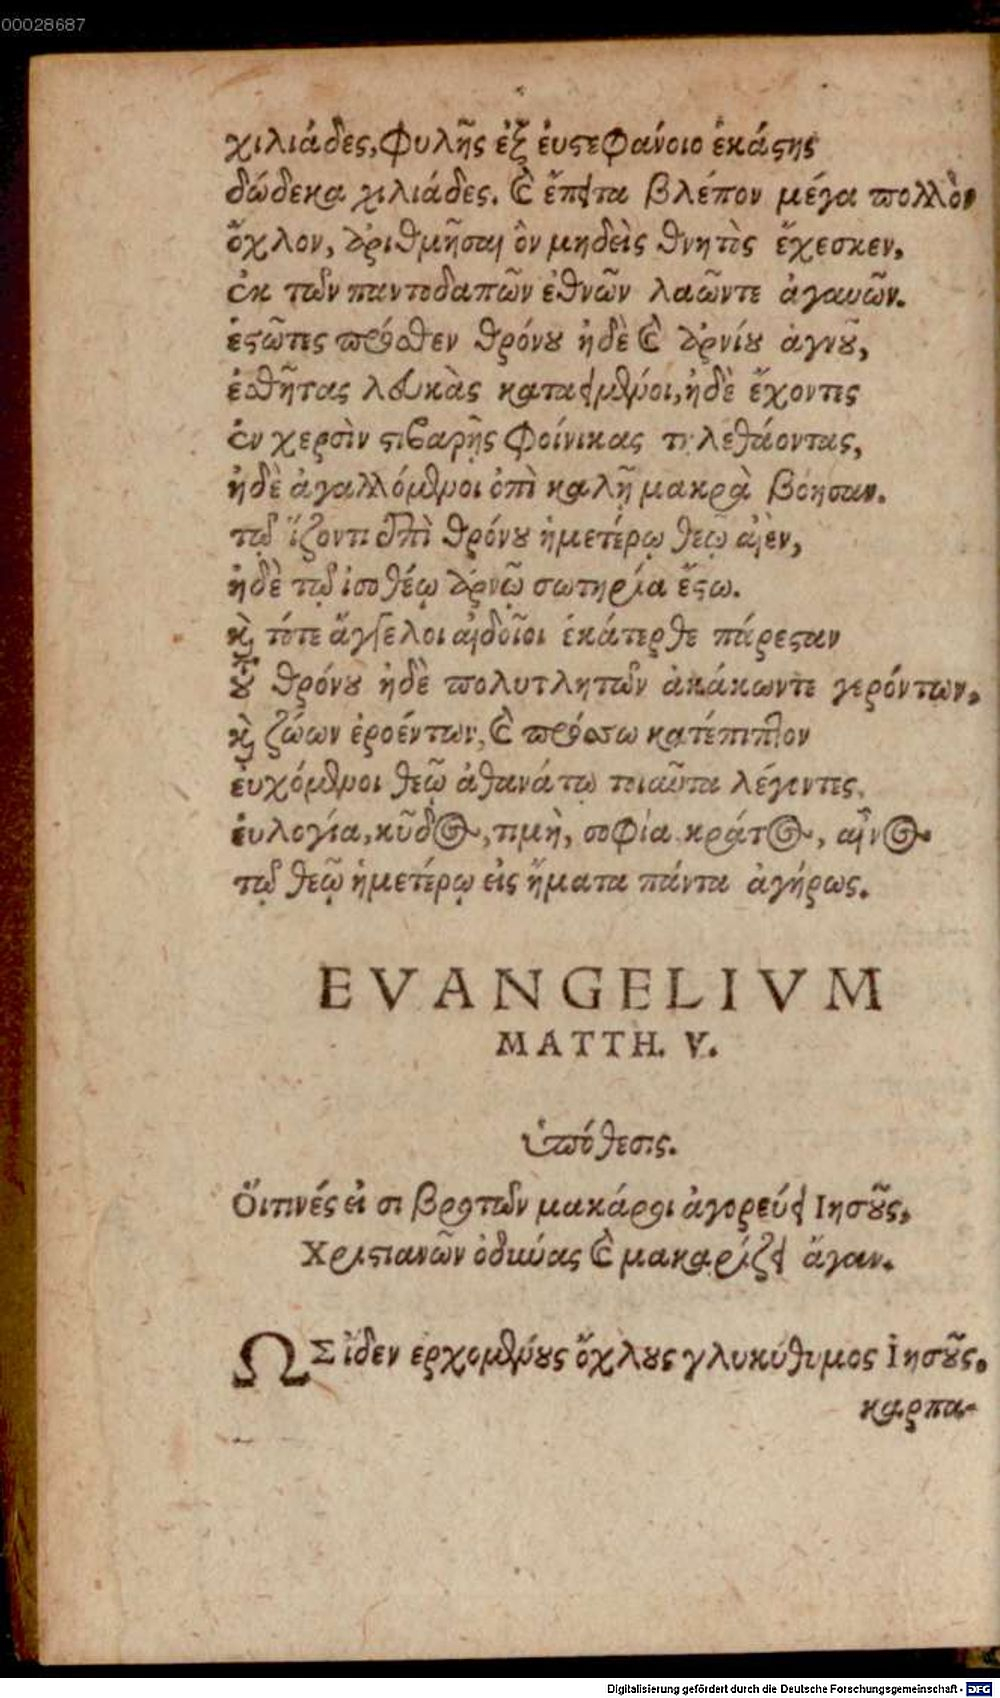 00028687
χιλιάδες, φυλῆς ἐξ ἐυστεφάνοιο ἑκάστης
δώδεκα χιλιάδες. καὶ ἔπειτα βλέπον μέγα πολλὸν
ὄχλον, ἀριθμῆσαι ὃν μηδεὶς θνητὸς ἔχεσκεν,
ἐκ τῶν παντοδαπῶν ἐθνῶν λαῶντε ἀγαυῶν.
ἑστῶτες πρόσθεν θρόνου ἠδὲ καὶ ἀρνίου ἁγνοῦ,
ἐσθῆτας λευκὰς καταειμένοι, ἠδὲ ἔχοντες
ἐν χερσὶν στιβαρῇς φοίνικας τηλεθάοντας,
ἠδὲ ἀγαλλόμενοι ὀπὶ καλῇ μακρὰ βόησαν.
τῷ ἵζοντι ἐπὶ θρόνου ἡμετέρῳ θεῷ αἰὲν,
ἠδὲ τῷ ἰσοθέῳ ἀρνῷ σωτηρία ἔστω.
καὶ τότε ἄγγελοι αἰδοῖοι ἑκάτερθε πάρεσταν
τοῦ θρόνου ἠδὲ πολυτλητῶν ἀκάκωντε γερόντων,
καὶ ζώων ἐροέντων, καὶ πρόσω κατέπιπτον
ἐυχόμενοι θεῷ ἀθανάτῳ τοιαῦτα λέγοντες.
ἐυλογία, κῦδος, τιμὴ, σοφία κράτος, αἶνος
τῷ θεῷ ἡμετέρῳ εἰς ἤματα πάντα ἀγήρως.
EVANGELIVM
MATTH. V.
ὑπόθεσις.
Ὅιτινές εἰσι βροτῶν μακάροι ἀγορεύει Ιησοῦς,
Χριστιανῶν ὁδεύας καὶ μακαρίζει ἄγαν.
ΩΣ ἴδεν ἐρχομένους ὄχλους γλυκύθυμος Ἰησοῦς.
καρπα-
Digitalisierung gefördert durch die Deutsche Forschungsgemeinschaft - DFG